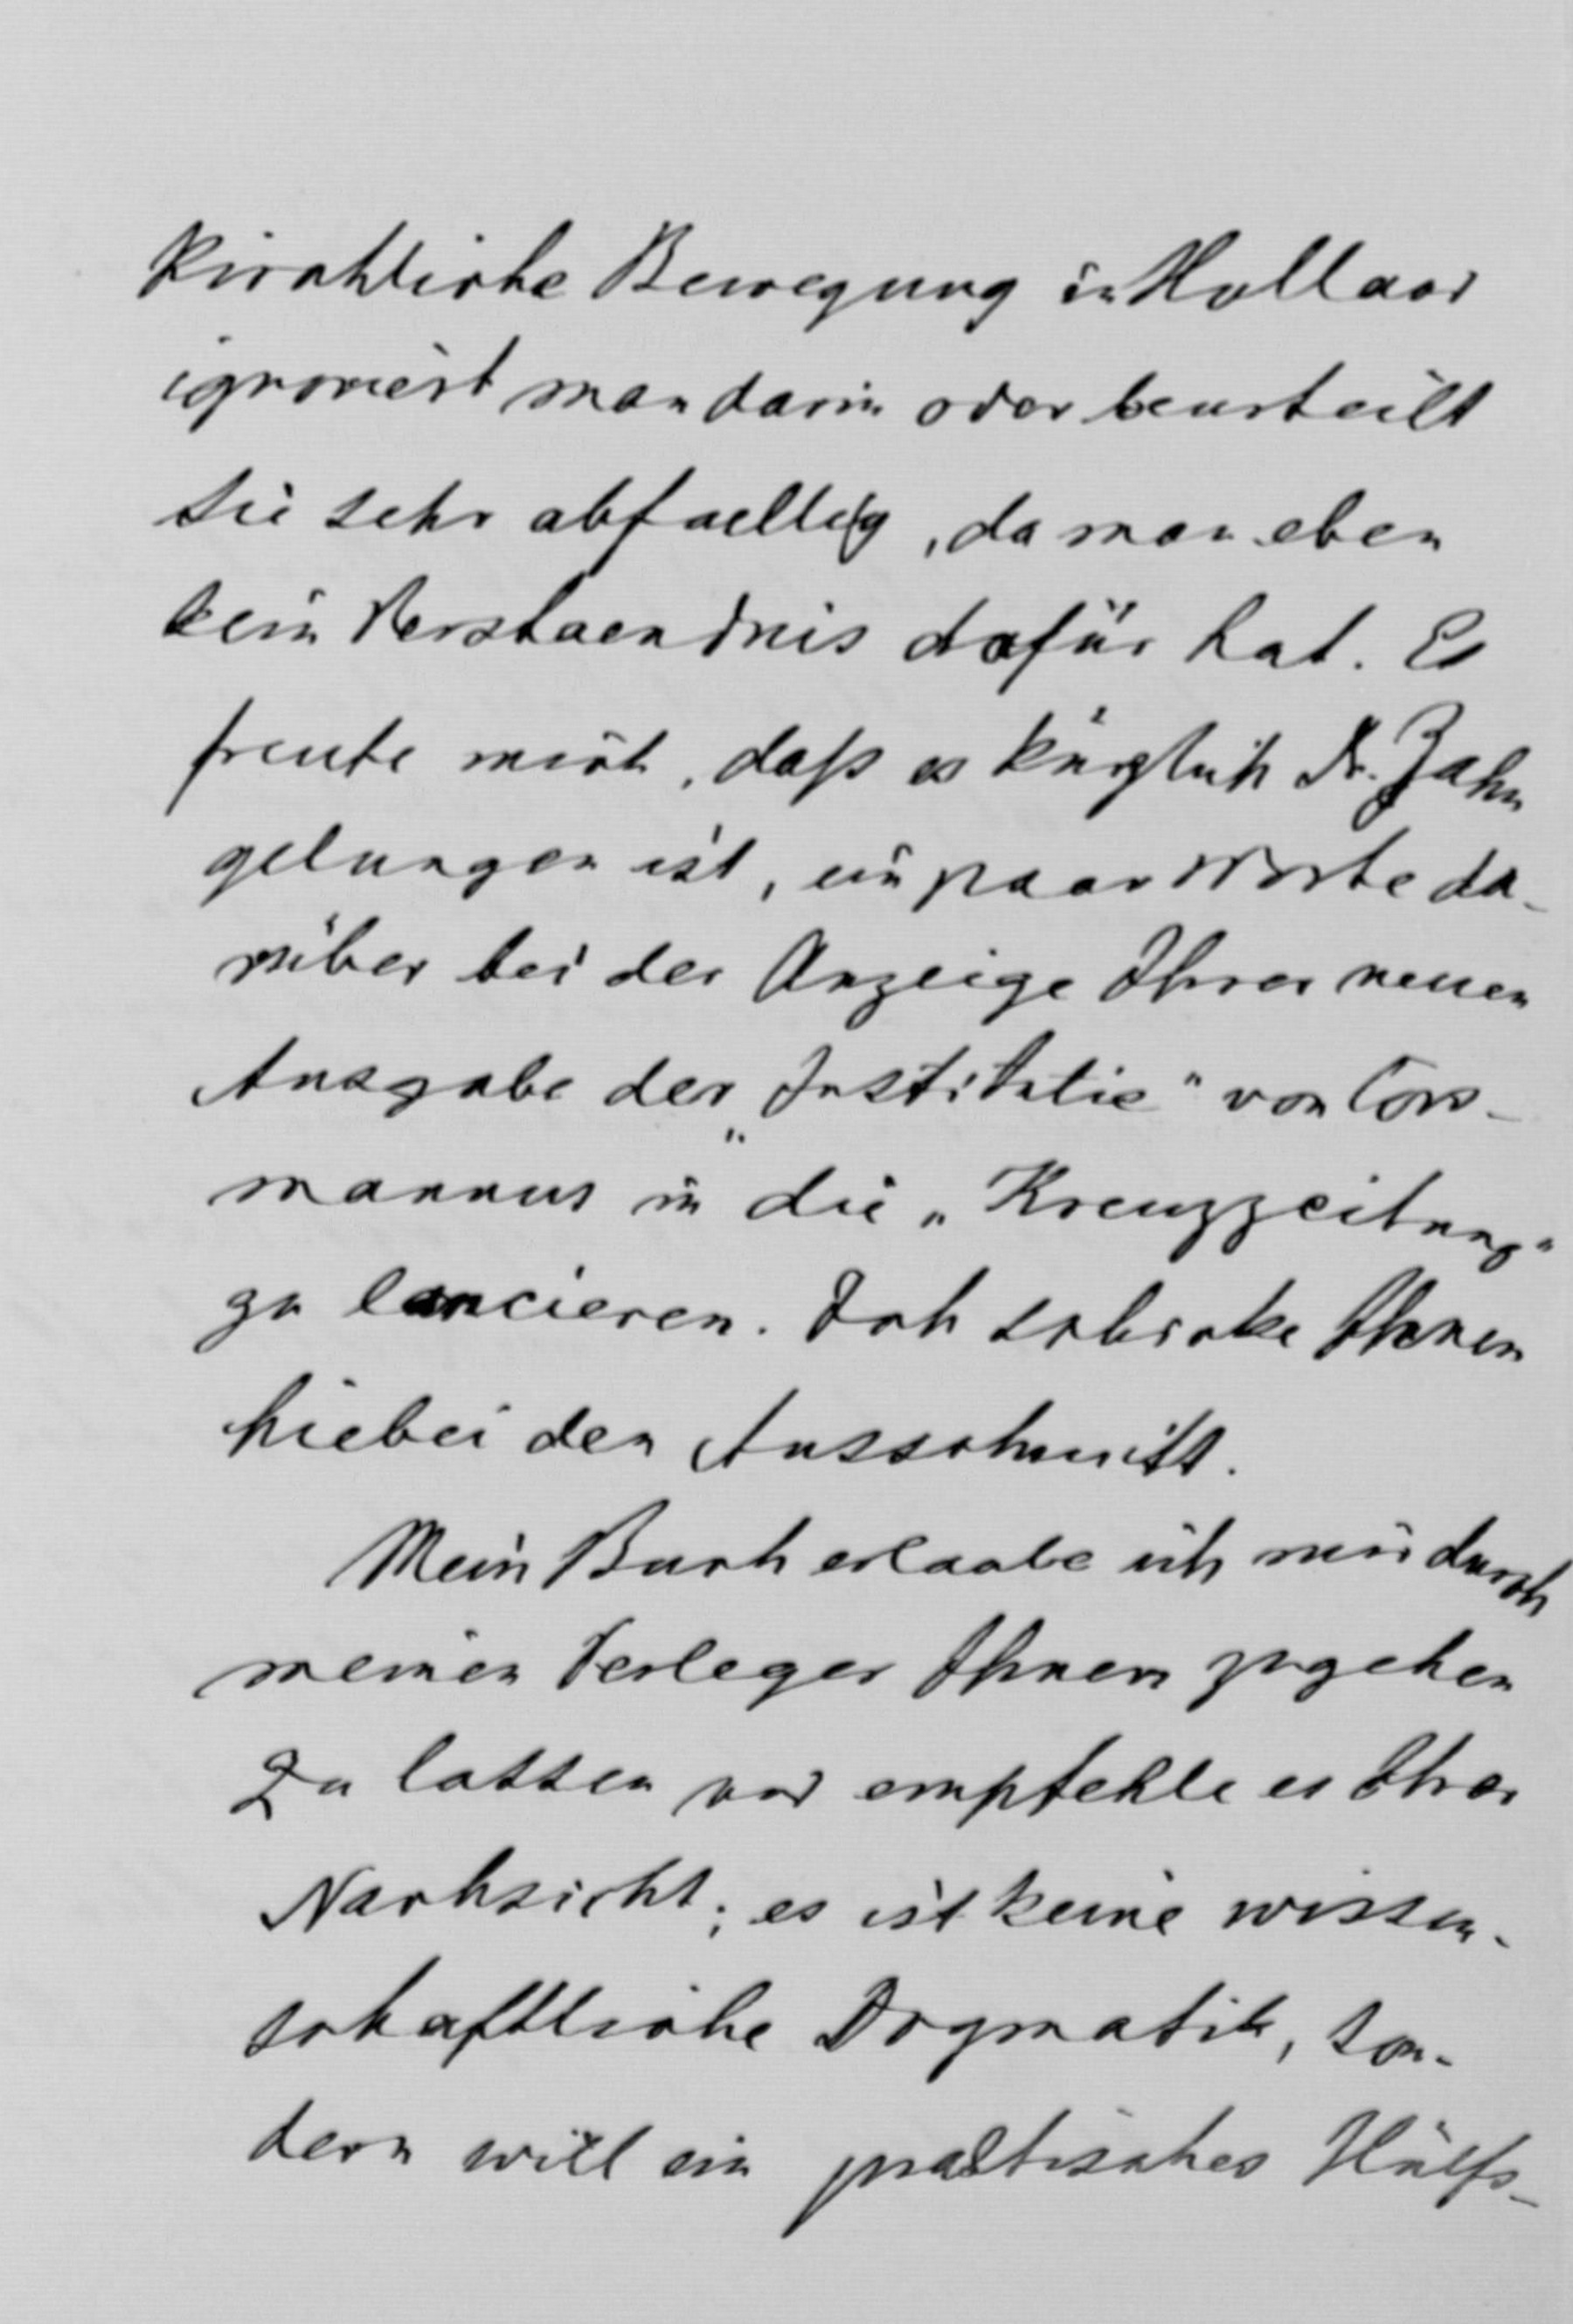 kirchliche Bewegung in Holland
ignoriert man darin oder beurteilt
sie sehr abfaellig, da man eben
kein Verstaendnis dafür hat. Es
freute mich, daß es kürzlich Dr. Zahn
gelungen ist, ein paar Worte da-
rüber bei der Anzeige Ihrer neuen
Ausgabe der „Institutie" von Cors-
mannus in die „Kreuzzeitung"
zu lancieren. Ich schicke Ihnen
hiebei den Ausschnitt.
Mein Buch erlaube ich mir durch
meinen Verleger Ihnen zugehen
zu lassen und empfehle es Ihrer
Nachsicht; es ist keine wissen-
schaftliche Dogmatik, son-
dern will ein praktisches Hülfs-